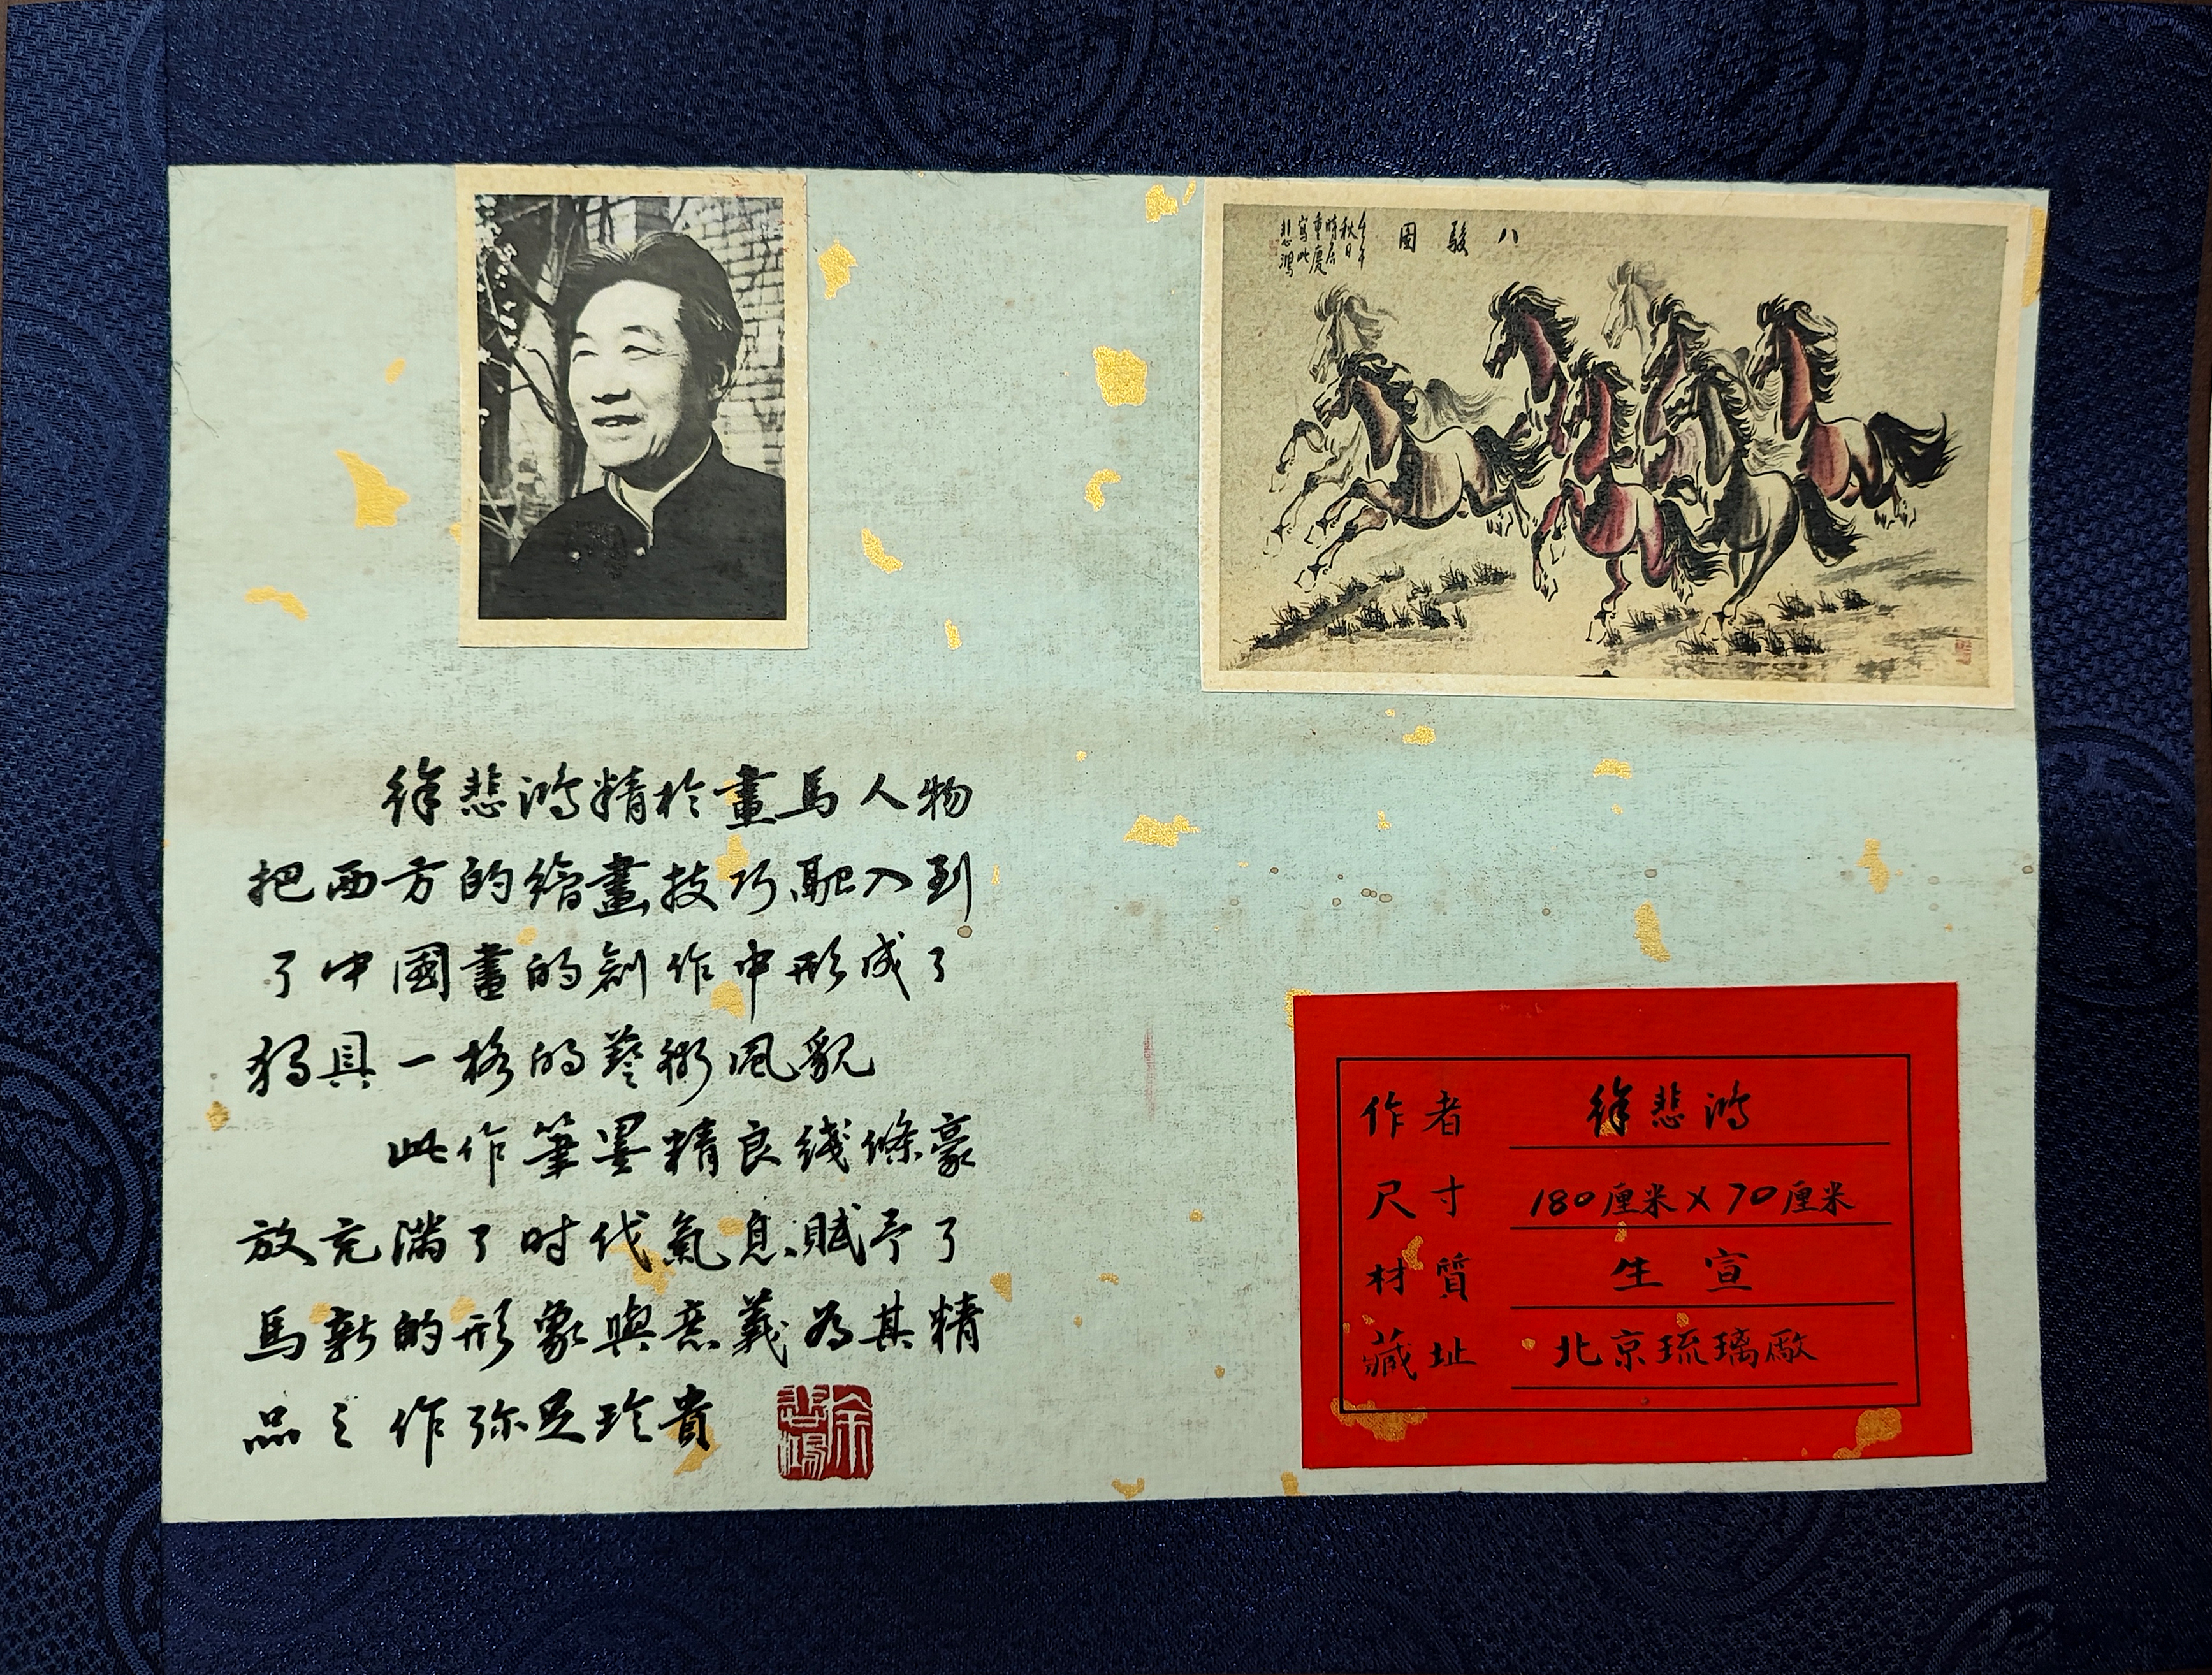 八駿圖
壬午
秋日
晴居
重慶
寫此
悲鴻
徐悲鴻精於畫馬人物
把西方的繪畫技巧融入到
了中國畫的創作中形成了
獨具一格的藝術風貌
此作筆墨精良綫條豪
放充满了时代氣息賦予了
馬新的形象與意義为其精
品之作弥足珍貴
徐悲鴻
作者 徐悲鴻
尺寸 180厘米×70厘米
材質 生宣
藏址 北京琉璃廠